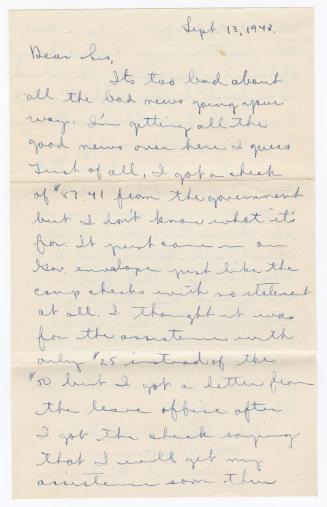 Sept. 13, 1943.
Dear Sis,
It's too bad about
all the bad news going your
way. I'm getting all the
good news over here I guess
First of all, I got a check
of $87.41 from the government
but I don't know what it's
for. It just came in an
Gov. envelope just like the
camp checks with no statement
at all. I thought it was
for the assistence with
only $25 instead of the
$50 but I got a letter from
the leave office after
I got the check saying
that I will get my
assistence soon thru